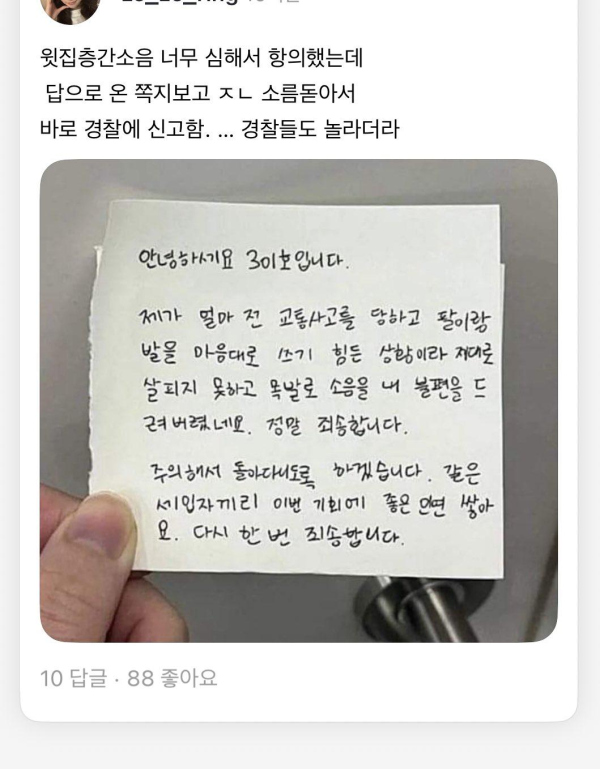 윗집층간소음 너무 심해서 항의했는데
답으로 온 쪽지보고 ㅈㄴ 소름돋아서
바로 경찰에 신고함. ... 경찰들도 놀라더라
안녕하세요 301호입니다.
제가 얼마 전 교통사고를 당하고 팔이랑
발을 마음대로 쓰기 힘든 상황이라 제대로
살피지 못하고 목발로 소음을 내 불편을 드
려버렸네요. 정말 죄송합니다.
주의해서 돌아다니도록 하겠습니다. 같은
세입자끼리 이번 기회에 좋은 인연 쌓아
요. 다시 한 번 죄송합니다.
10 답글 · 88 좋아요